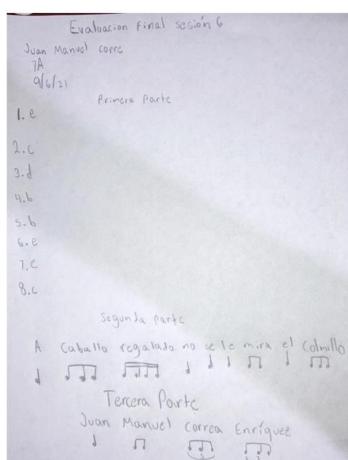 Evaluacion Final sesión 6
Juan Manuel corre
7A
9/6/21
Primera Parte
1. e
2. c
3. d
4. b
5. b
6. e
7. c
8. c
Segunda parte
A Caballo regalado no se le mira el Colmillo
Tercera Parte
Juan Manuel correa Enríquez